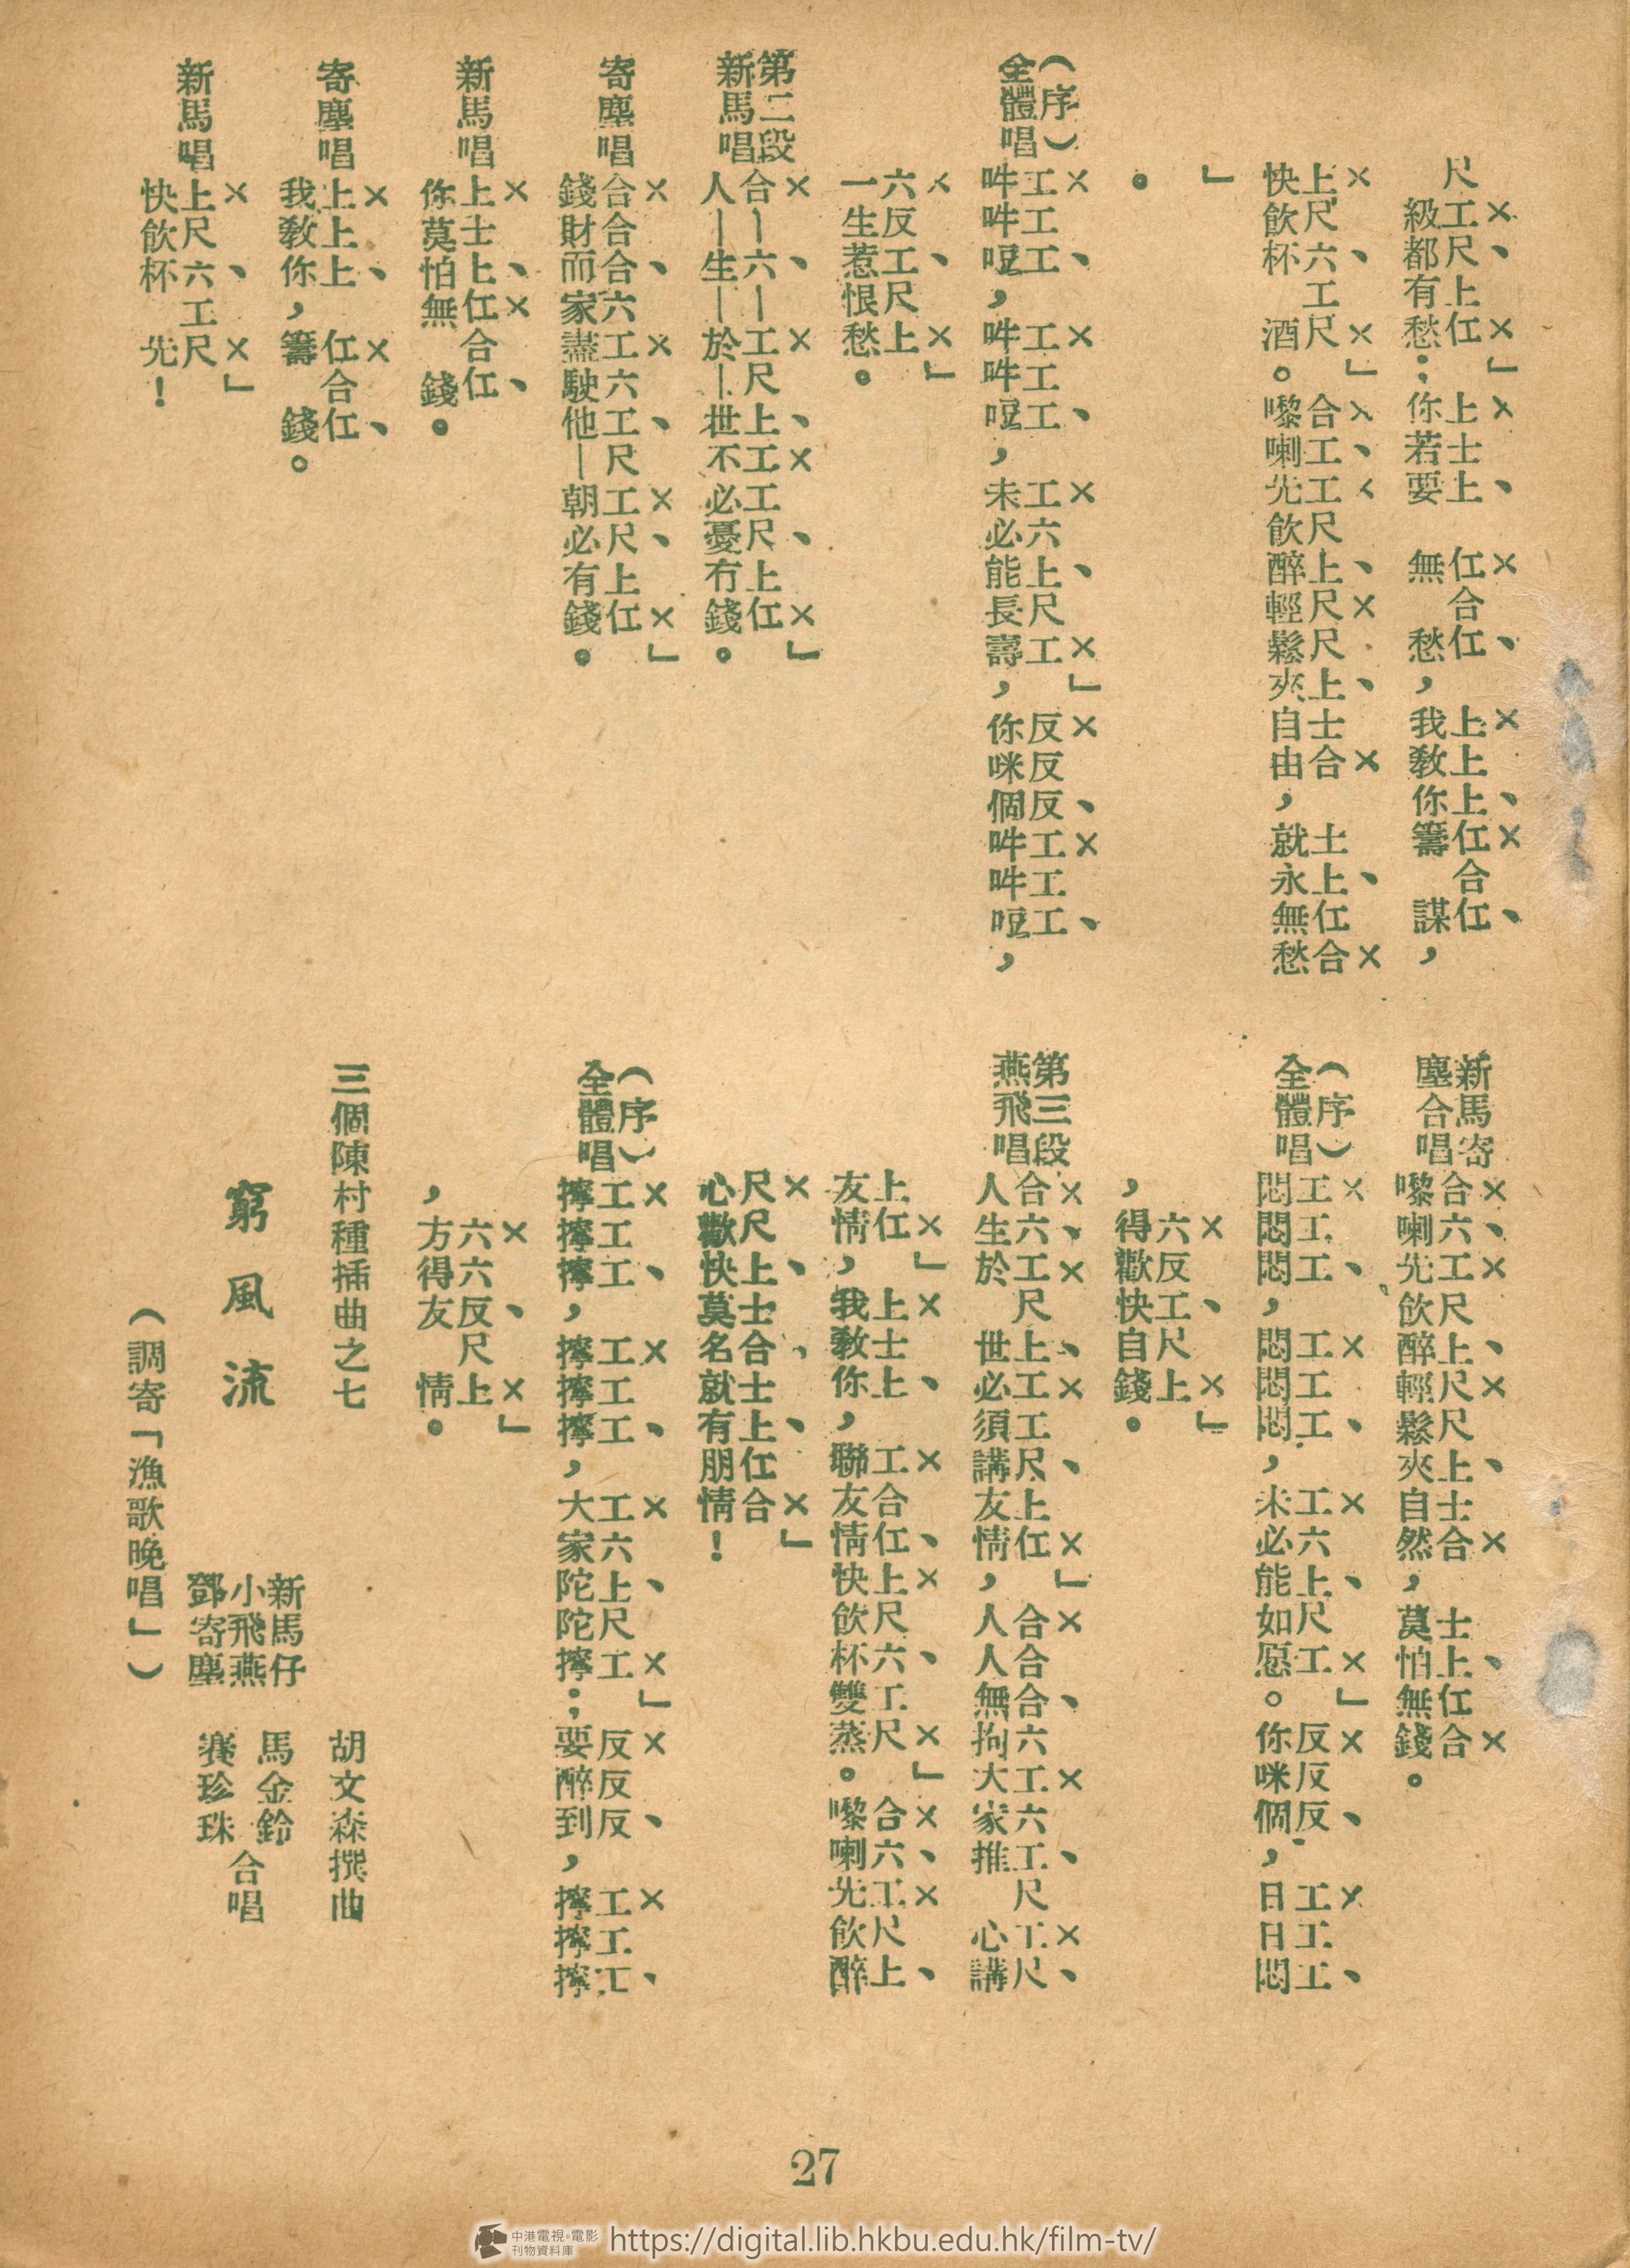 ×、×」×、×、×、×、
尺工尺上仜上士上仜合仜上上上仜合仜
級都有愁；你若要無愁，我敎你籌謀，
×、×」×、×、×、×、×
上尺六工尺合工工尺上尺尺上士合士上仜合
快飲杯酒。嚟喇先飲醉輕鬆夾自由，就永無愁
」
。
（序）
全體唱
×、×、×、×」×、×、
工工工工工工工六上尺工反反反工工工
吽吽哣，吽吽哣，未必能長壽，你咪個吽吽哣，
×、×」
六反工尺上
一生惹恨愁。
第二段
新馬唱
×、×、×、×」
合｜六｜工尺上工工尺上仜
人｜生｜於｜世不必憂冇錢。
寄塵唱
×、×、×、×」
合合合六工六工尺工尺上仜
錢財而家盡駛他｜朝必有錢。
新馬唱
×、×、
上士上仜合仜
你莫怕無錢。
寄塵唱
×、×、
上上上仜合仜
我敎你，籌錢。
新馬唱
×、×」
上尺六工尺
快飲杯先！
新馬寄
塵合唱
×、×、×、×、×
合六工尺上尺尺上士合士上仜合
嚟喇先飲醉輕鬆夾自然，莫怕無錢。
（序）
全體唱
×、×、×、×」×、×、
工工工工工工工六上尺工反反反工工工
悶悶悶，悶悶悶，未必能如愿。你咪個，日日悶
×、×」
六反工尺上
，得歡快自錢。
第三段
燕飛唱
×、×、×、×」×、×、×、
合六工尺上工工尺上仜合合合六工六工尺工尺
人生於世必須講友情，人人無拘大家推心講
×」×、×、×、×」×、×、
上仜上士上工合仜上尺六工尺合六工尺上
友情，我敎你，聯友情快飲杯雙蒸。嚟喇先飲醉
×、、、×」
尺尺上士合士上仜合
心歡快莫名就有朋情！
（序）
全體唱
×、×、×、×」×、×、
工工工工工工工六上尺工反反反工工工
擰擰擰，擰擰擰，大家陀陀擰；要醉到，擰擰擰
×、×」
六六反尺上
，方得友情。
三個陳村種插曲之七
胡文森撰曲
窮風流
新馬仔
小飛燕
鄧寄塵
馬金鈴
賽珍珠
合唱
（調寄「漁歌晚唱」）
27
中港電視·電影
刊物資料庫
https://digital.lib.hkbu.edu.hk/film-tv/